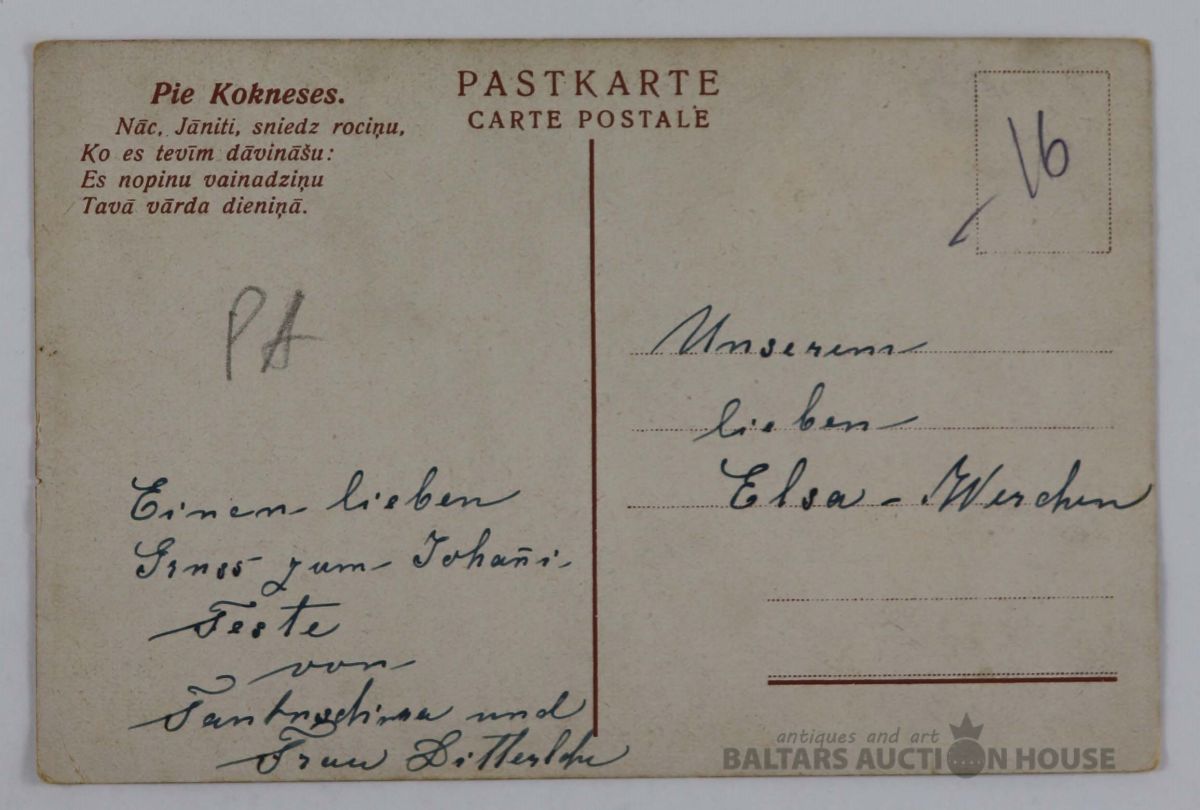 Pie Kokneses.
Nāc, Jāniti, sniedz rociņu,
Ko es tevīm dāvināšu:
Es nopinu vainadziņu
Tavā vārda dieniņā.
PASTKARTE
CARTE POSTALE
16
PA
Einen lieben
Gruss zum Johañi-
Feste
von
und
Frau
Unserem
lieben
Elsa-
antiques and art
BALTARS AUCTION HOUSE